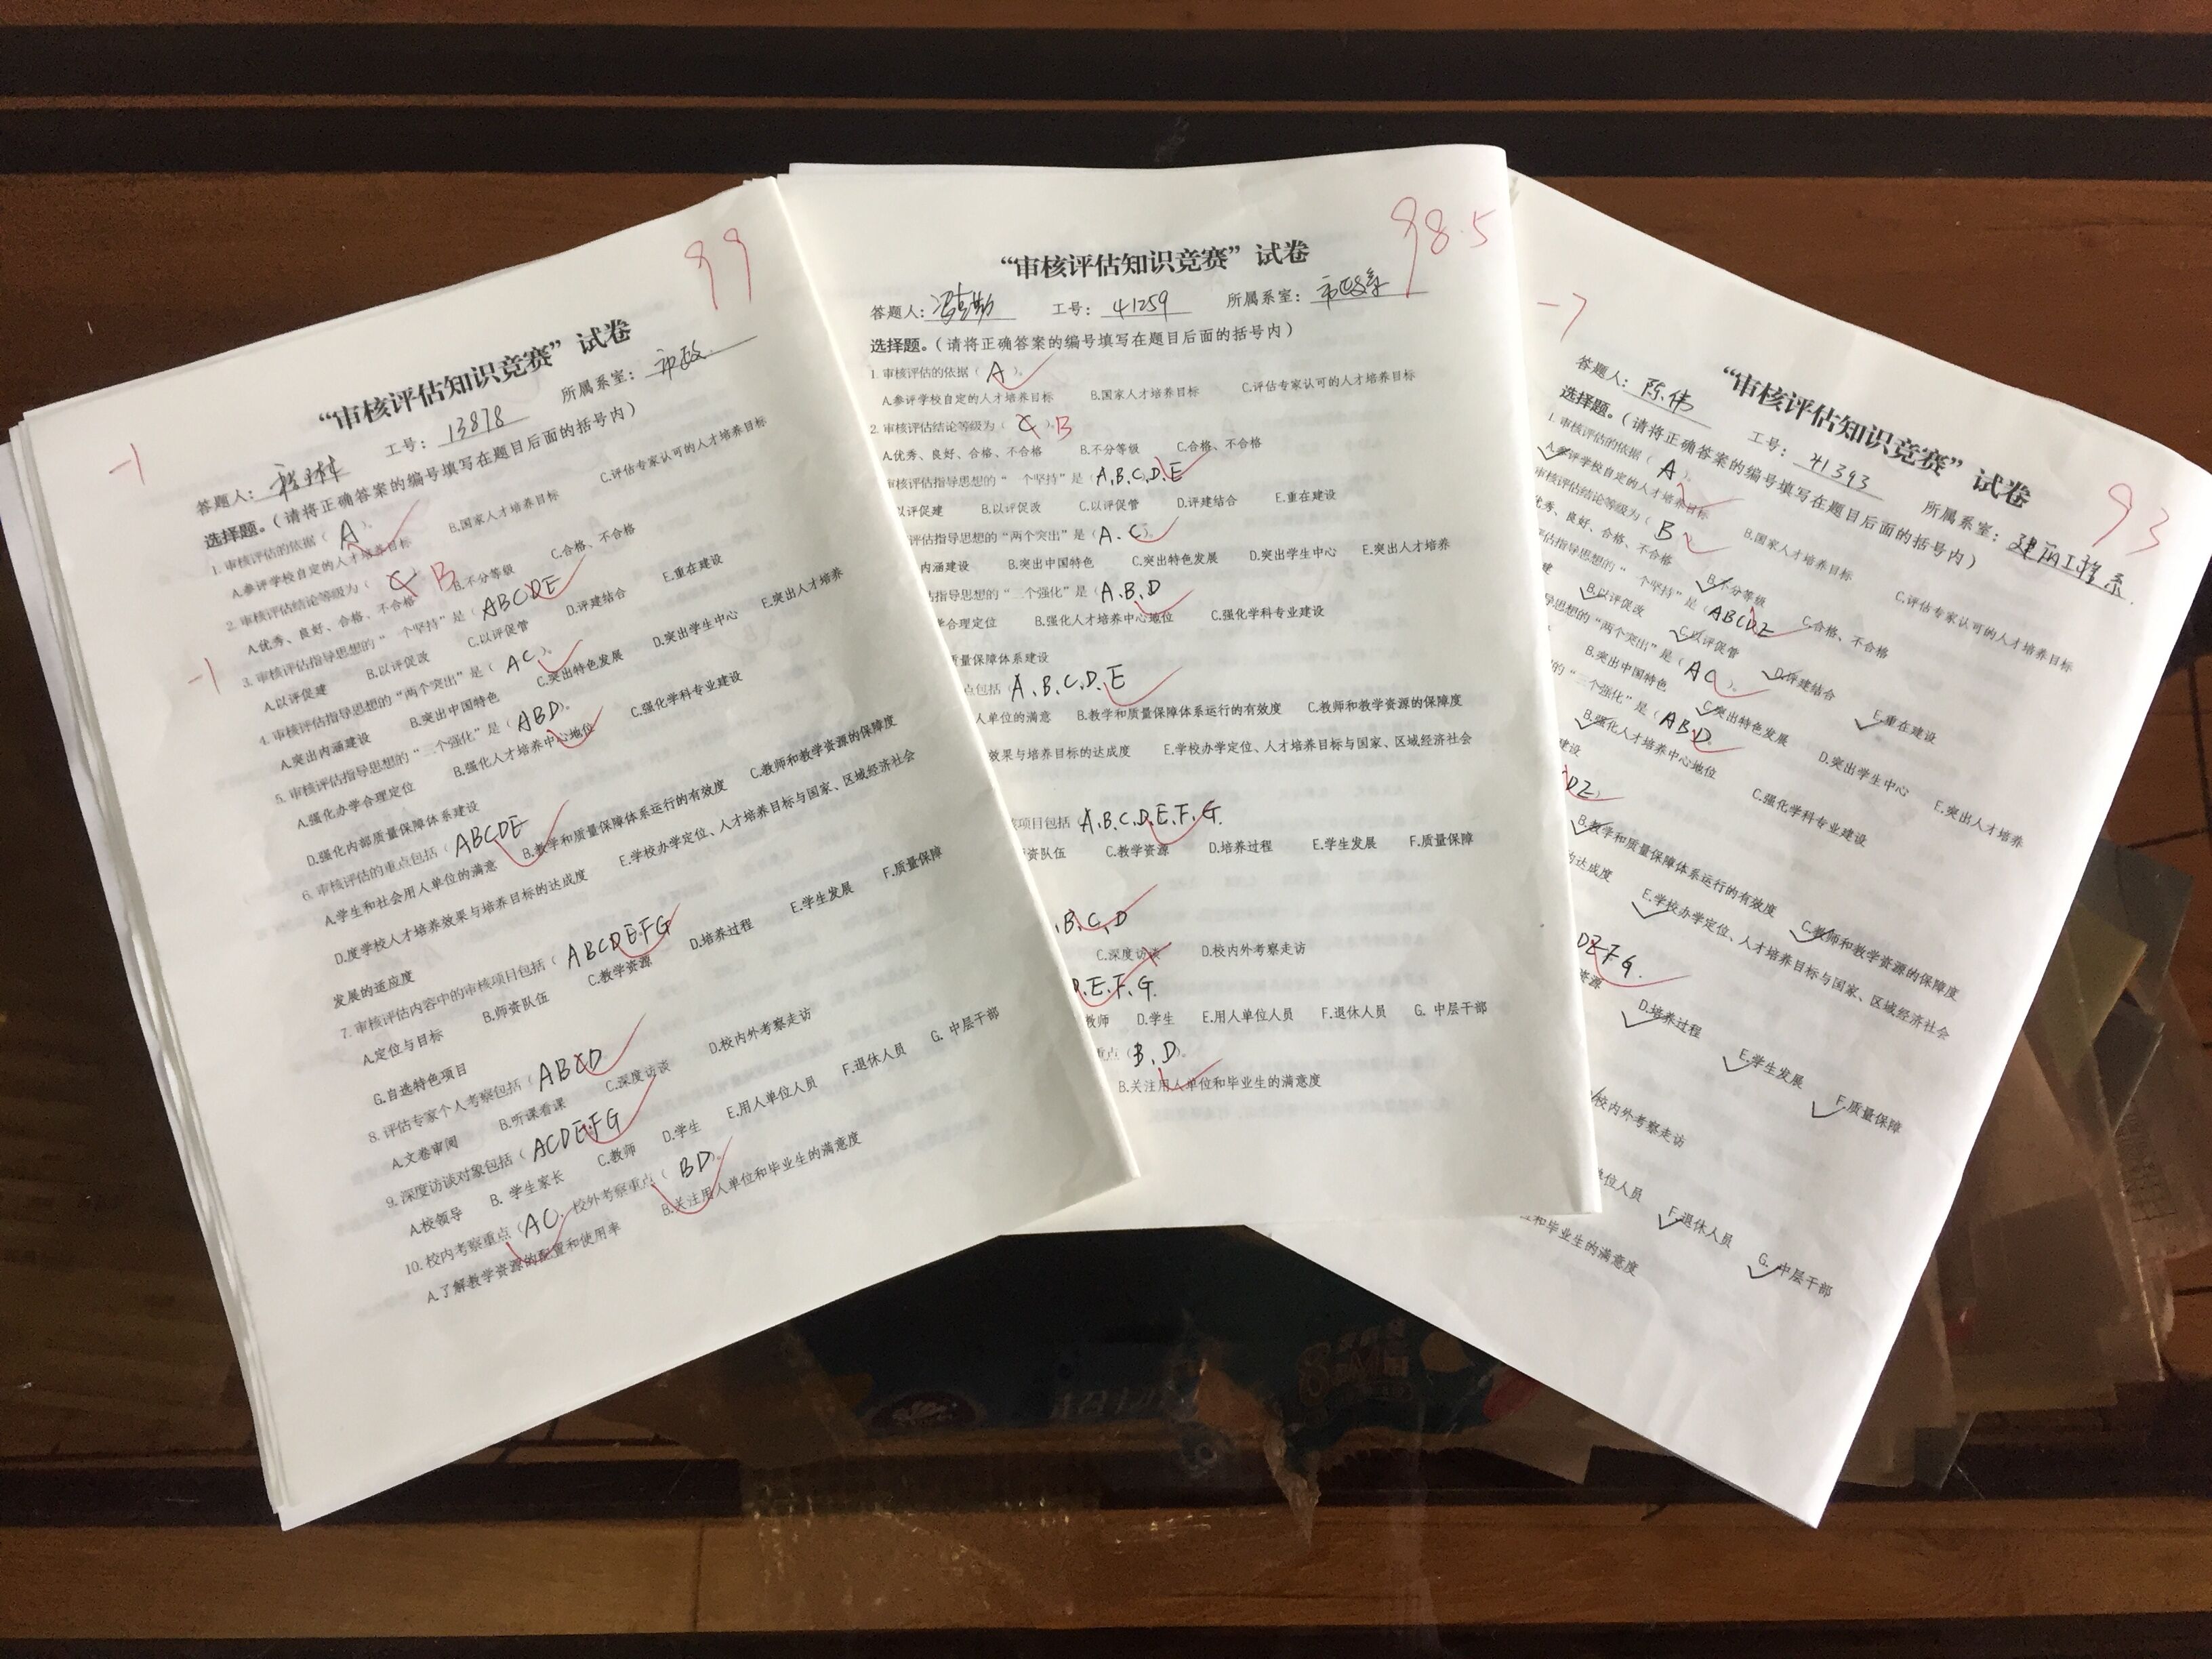 99
-1
“审核评估知识竞赛”试卷
答题人： 工号：13878 所属系室：市政
选择题。（请将正确答案的编号填写在题目后面的括号内）
1. 审核评估的依据（ A ）。
A.参评学校自定的人才培养目标 B.国家人才培养目标 C.评估专家认可的人才培养目标
2. 审核评估结论等级为（ C B
A.优秀、良好、合格、不合格 B.不分等级 C.合格、不合格
-1
3. 审核评估指导思想的“ 个坚持”是（ ABCDE
A.以评促建 B.以评促改 C.以评促管 D.评建结合 E.重在建设
4. 审核评估指导思想的“两个突出”是（ AC ）。
A.突出内涵建设 B.突出中国特色 C.突出特色发展 D.突出学生中心 E.突出人才培养
5. 审核评估指导思想的“三个强化”是（ ABD ）。
A.强化办学合理定位 B.强化人才培养中心地位 C.强化学科专业建设
D.强化内部质量保障体系建设
6. 审核评估的重点包括（ ABCDE
A.学生和社会用人单位的满意 B.教学和质量保障体系运行的有效度 C.教师和教学资源的保障度
D.度学校人才培养效果与培养目标的达成度 E.学校办学定位、人才培养目标与国家、区域经济社会
发展的适应度
7. 审核评估内容中的审核项目包括（ ABCDEFG
A.定位与目标 B.师资队伍 C.教学资源 D.培养过程 E.学生发展 F.质量保障
G.自选特色项目
8. 评估专家个人考察包括（ ABCD
A.文卷审阅 B.听课看课 C.深度访谈 D.校内外考察走访
9. 深度访谈对象包括（ ACDEFG
A.校领导 B. 学生家长 C.教师 D.学生 E.用人单位人员 F.退休人员 G. 中层干部
10. 校内考察重点（ AC ），校外考察重点（ BD ）。
A.了解教学资源的配置和使用率 B.关注用人单位和毕业生的满意度
98.5
“审核评估知识竞赛”试卷
答题人： 工号：41259 所属系室：市政系
选择题。（请将正确答案的编号填写在题目后面的括号内）
1. 审核评估的依据（ A ）。
A.参评学校自定的人才培养目标 B.国家人才培养目标 C.评估专家认可的人才培养目标
2. 审核评估结论等级为（ C ）。B
A.优秀、良好、合格、不合格 B.不分等级 C.合格、不合格
审核评估指导思想的“ 个坚持”是（ A.B.C.D.E
以评促建 B.以评促改 C.以评促管 D.评建结合 E.重在建设
评估指导思想的“两个突出”是（ A.C ）。
内涵建设 B.突出中国特色 C.突出特色发展 D.突出学生中心 E.突出人才培养
估指导思想的“三个强化”是（ A.B.D
学合理定位 B.强化人才培养中心地位 C.强化学科专业建设
质量保障体系建设
点包括（ A.B.C.D.E
人单位的满意 B.教学和质量保障体系运行的有效度 C.教师和教学资源的保障度
效果与培养目标的达成度 E.学校办学定位、人才培养目标与国家、区域经济社会
项目包括（ A.B.C.D.E.F.G.
资队伍 C.教学资源 D.培养过程 E.学生发展 F.质量保障
.B.C.D
C.深度访谈 D.校内外考察走访
D.E.F.G.
教师 D.学生 E.用人单位人员 F.退休人员 G. 中层干部
重点（ B.D ）。
B.关注用人单位和毕业生的满意度
-7
93
“审核评估知识竞赛”试卷
答题人：陈伟 工号：41393 所属系室：建筑工程系
选择题。（请将正确答案的编号填写在题目后面的括号内）
1. 审核评估的依据（ A ）。
A.参评学校自定的人才培养目标 B.国家人才培养目标 C.评估专家认可的人才培养目标
审核评估结论等级为（ B
优秀、良好、合格、不合格 B.不分等级 C.合格、不合格
评估指导思想的“ 个坚持”是（ ABCDE
建 B.以评促改 C.以评促管 D.评建结合 E.重在建设
导思想的“两个突出”是（ AC ）。
B.突出中国特色 C.突出特色发展 D.突出学生中心 E.突出人才培养
的“三个强化”是（ ABD ）。
B.强化人才培养中心地位 C.强化学科专业建设
建设
DE）
B.教学和质量保障体系运行的有效度 C.教师和教学资源的保障度
的达成度 E.学校办学定位、人才培养目标与国家、区域经济社会
DEFG.
资源 D.培养过程 E.学生发展 F.质量保障
校内外考察走访
单位人员 F.退休人员 G. 中层干部
位和毕业生的满意度